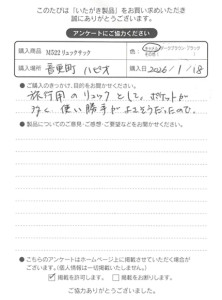 このたびは「いたがき製品」をお買い求めいただき
誠にありがとうございます。
アンケートにご協力ください
購入商品 M522 リュックサック 色：
購入場所 音更町 ハピオ 購入日 2026/1/18
●ご購入のきっかけ、目的をお聞かせください。
旅行用のリュックとして。ポケットが
多く、使い勝手がよさそうだったので。
●製品についてのご意見・ご感想・ご要望などをお聞かせください。
●こちらのアンケートはホームページ上に掲載させていただく場合が
ございます。(個人情報は一切掲載いたしません。)
☑掲載を許可します。 □掲載をお断りします。
ご協力ありがとうございました。